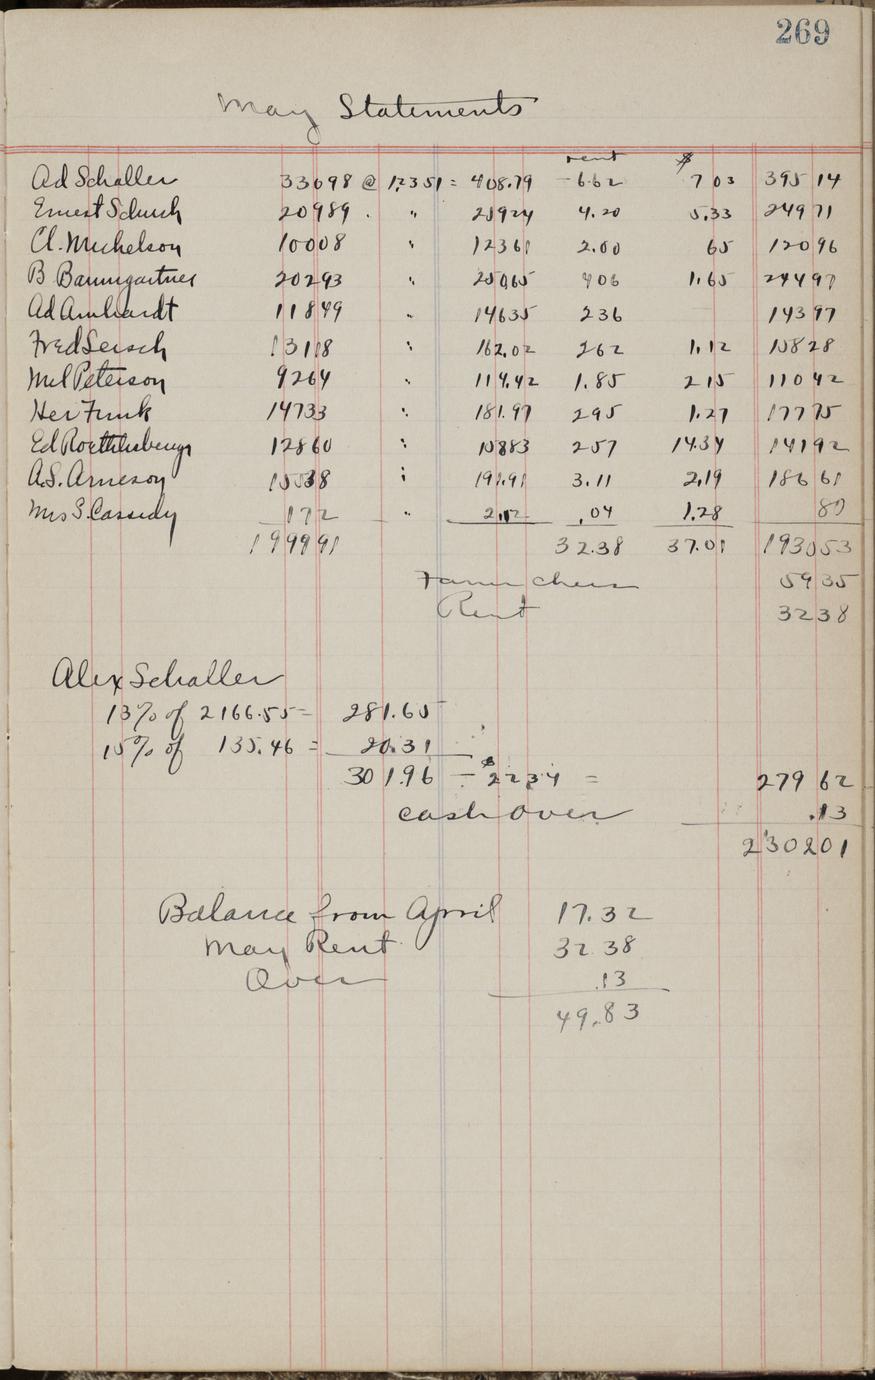 269
May Statements
rent $
Ad Schaller 33098 @ 1.2351 = 408.79 - 6.62 7 03 395 14
Ernest Schurch 20989 . " 259 24 4.20 5.33 249 71
Cl. Michelson 10008 " 123 61 2.00 65 120 96
B Baumgartner 20293 " 250,65 4 06 1.65 244 97
Ad Arnhardt 11849 " 146 35 2 36 143 97
Fred Lersch 13118 " 162.02 2 62 1.12 158 28
Mel Peterson 9264 " 114.42 1.85 2 15 110 42
Her Funk 14733 " 181.97 2 95 1.27 177 75
Ed 12860 " 158 83 2 57 14.34 141 92
A.S. Arneson 15538 " 191.91 3.11 2,19 186 61
Mrs S. Cassidy 172 " 2.12 .04 1.28 80
1999 91 32.38 37.01 1930 53
59 35
Rent 32 38
Alex Schaller
13% of 2166.55 = 281.65
15% of 135.46 = 20.31
301.96 - $22 34 = 279 62
cash over .13
2302 01
Balance from April 17.32
May Rent 32 38
Over .13
49.83